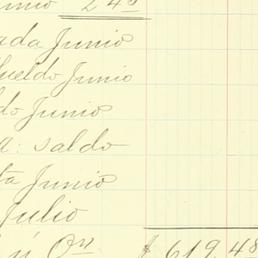 unio 240
ada Junio
ueldo Junio
do Junio
a: saldo
ta Junio
Julio
$ 619.48